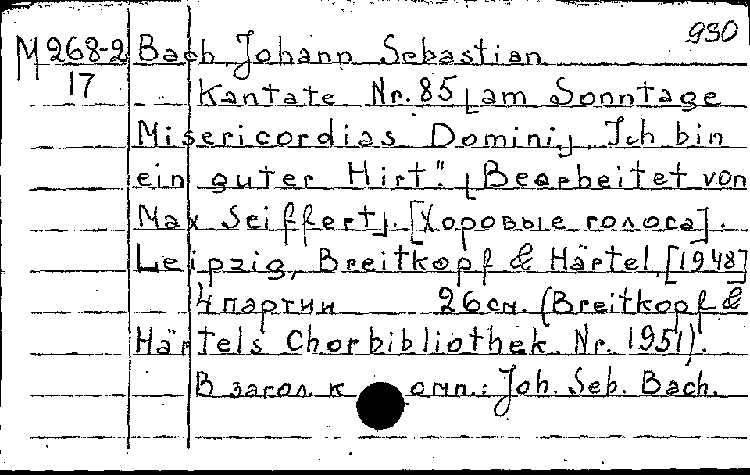 930
M 268-2 Bach Johann Sebastian
17 Kantate Nr. 85 [am Sonntage
Misericordias Domini] „Ich bin
ein guter Hirt". [Bearbeitet von
Max Seiffert]. [Хоровые голоса].
Leipzig, Breitkopf & Härtel, [1948]
4 партии 26 см. (Breitkopf &
Härtels Chorbibliothek Nr. 1951).
В загол. к омп.: Joh. Seb. Bach.